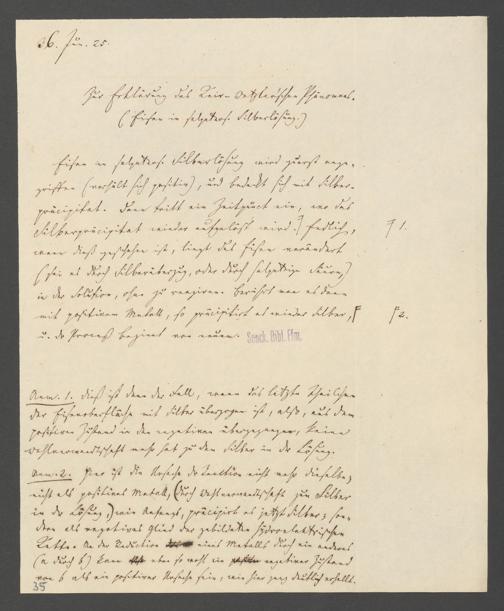 26. Jun. 25.
Zur Erklärung des Keir-Wetzlar'schen Phänomens.
(Eisen in salpeters. Silberlösung.)
Eisen in salpeters. Silberlösung wird zuerst ange-
griffen (verhält sich positiv), und bedeckt sich mit Silber-
präcipitat. Dann tritt ein Zeitpunct ein, wo das
Silberpräcipitat wieder aufgelöst wird. Endlich,
1.
wenn dieß geschehen ist, liegt das Eisen verändert
(sei es durch Silberüberzug, oder durch salpetrige Säure)
in der Solution, ohne zu reagiren. Berührt man es dann
mit positivem Metall, so präcipitirt es wieder Silber,
2.
u. der Proceß beginnt von neuem.
Senck. Bibl. Ffm.
Anm. 1. Dieß ist dann der Fall, wenn das letzte Theilchen
der Eisenoberfläche mit Silber überzogen ist, also, aus dem
positiven Zustand in den negativen übergegangen, keine
Wahlverwandtschaft mehr hat zu dem Silber in der Lösung.
Anm. 2. Hier ist die Ursache der Reaction nicht mehr dieselbe;
nicht als positives Metall, (durch Wahlverwandtschaft zum Silber
in der Lösung,) wie Anfangs, präcipitirt es jetzt Silber; son-
dern als negatives Glied der gebildeten hydroelektrischen
Kette. An der Reduction eines Metalls durch ein anderes
(a durch b) kann eben so wohl ein negativer Zustand
von b als ein positiver Ursache sein, wie hier ganz deutlich erhellt.
35